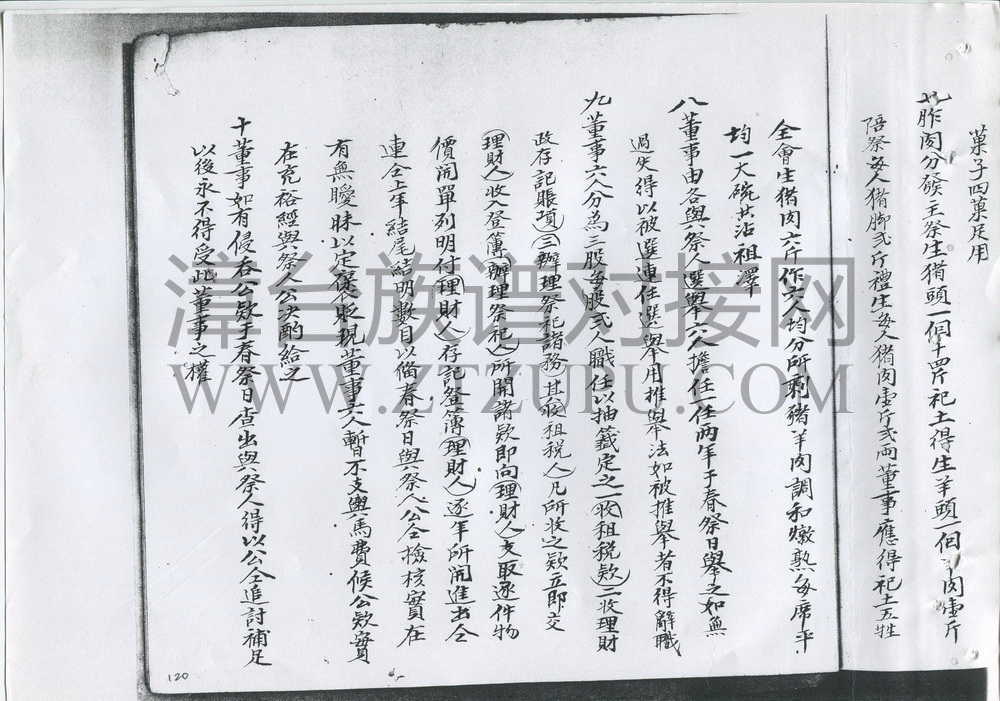 菓子四菓足用
九胙肉分發主祭生猪頭一個十四斤祀土得生羊頭一個羊肉壹斤
陪祭每人猪脚弍斤禮生每人猪肉壹斤弍両董事應得祀土五牲
全會生猪肉六斤作六人均分所剩猪羊肉調和燉熟每席平
均一大碗共沾祖澤
八董事由各與祭人選舉六人擔任一任両年于春祭日舉之如無
過失得以被選連任選舉用推舉法如被推舉者不得辭職
九董事六人分為三股每股弍人職任以抽籤定之一(收租税欵)二收理財
政存記賬項(三辦理祭祀諸務)其(收租税人)凡所收之欵立即交
(理財人)收入登簿(辦理祭祀人)所開諸欵即向(理財人)支取逐件物
價開單列明付(理財人)存記登簿(理財人)逐年所開進出仝
連仝上年結尾結明數目以俻春祭日與祭人公仝檢核實在
有無曖昧以定褒貶現董事六人暫不支輿馬費候公欵實
在充裕經與祭人公決酌給之
十董事如有侵吞公欵于春祭日查出與祭人得以公仝追討補足
以後永不得受此董事之權
120
漳台族谱对接网
WWW.ZTZUPU.COM